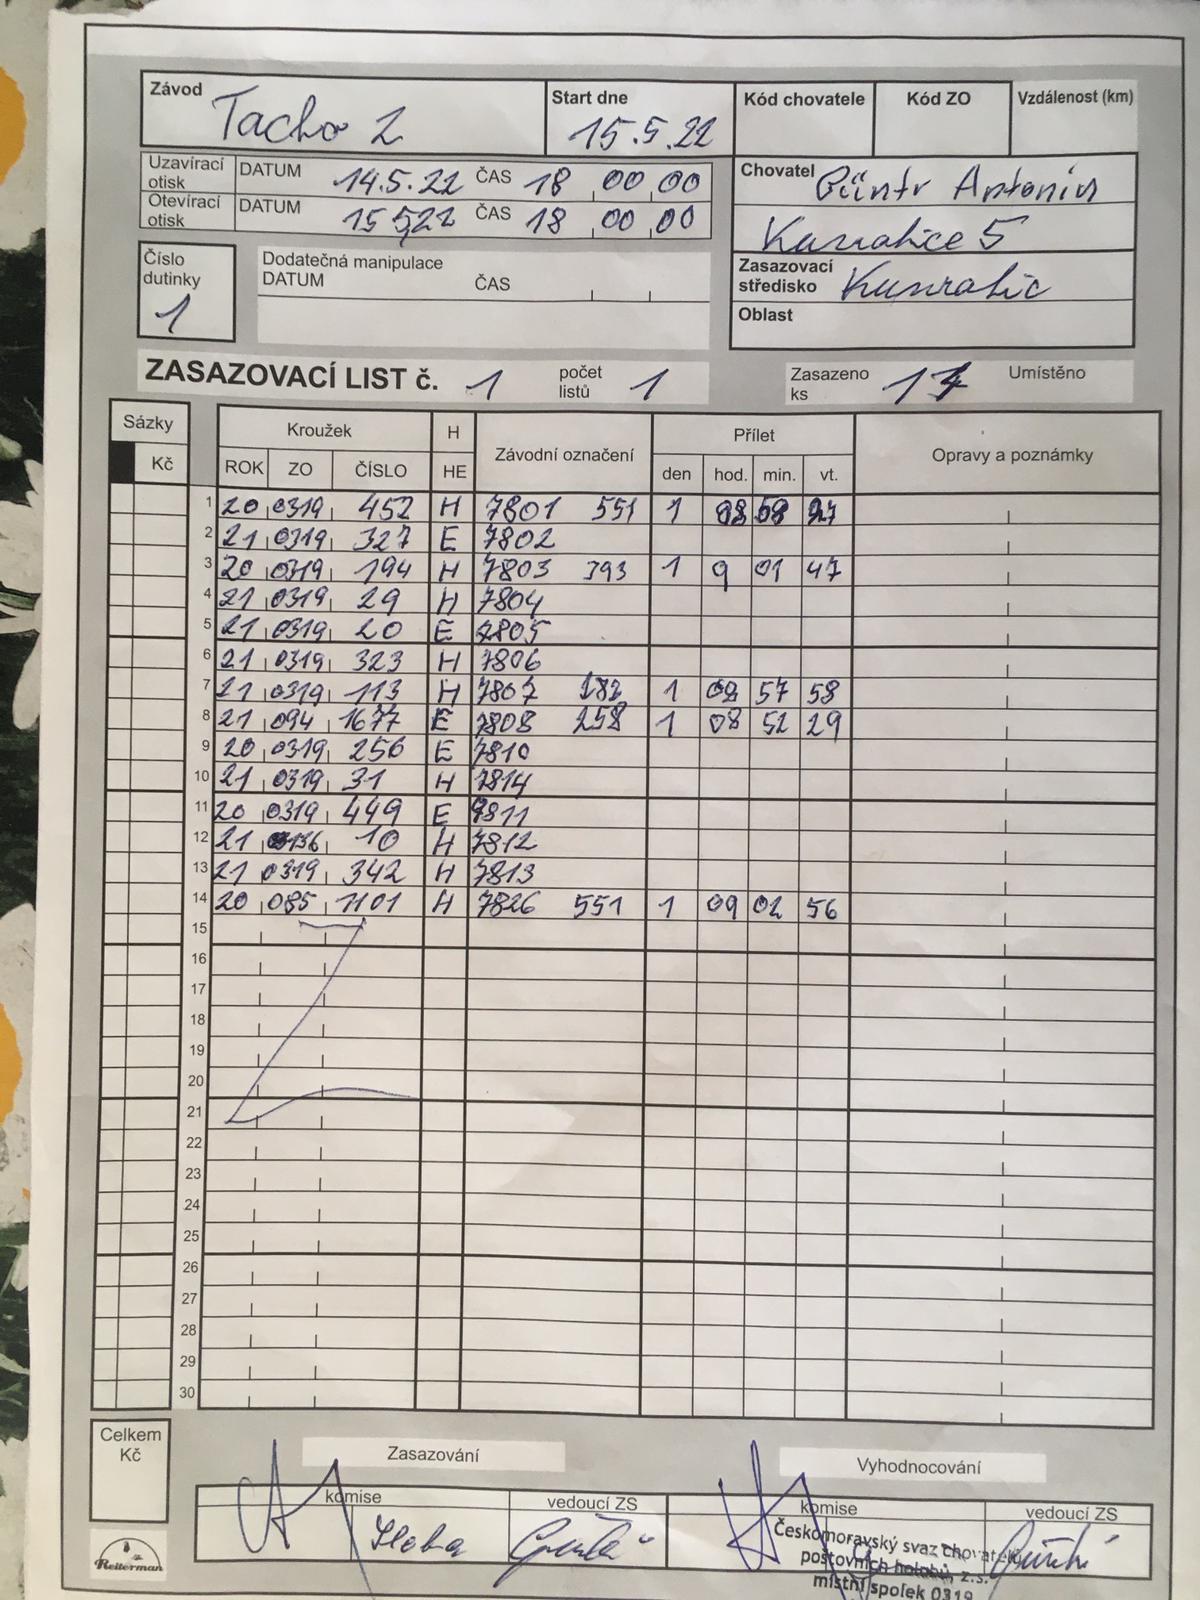 Závod Start dne Kód chovatele Kód ZO Vzdálenost (km)
15.5.22
Uzavírací otisk DATUM 14.5.22 ČAS 18 00 00
Otevírací otisk DATUM 15 5,22 ČAS 18 00 00
Chovatel Antonín
Kunratice 5
Číslo dutinky 1
Dodatečná manipulace
DATUM ČAS
Zasazovací středisko Kunratic
Oblast
ZASAZOVACÍ LIST č. 1 počet listů 1 Zasazeno ks Umístěno
Sázky Kroužek H Závodní označení Přílet Opravy a poznámky
Kč ROK ZO ČÍSLO HE den hod. min. vt.
1 20 0319 452 H 7801 551 1
2 21 0319 327 E 7802
3 20 0319 194 H 7803 393 1 9 01 47
4 21 0319 29 H 7804
5 21 0319 20 E 7805
6 21 0319 323 H 7806
7 21 0319 113 H 7807 182 1 08 57 58
8 21 094 1677 E 7808 258 1 08 52 29
9 20 0319 256 E 7810
10 21 0319 31 H 7814
11 20 0319 449 E 7811
12 21 10 H 7812
13 21 0319 342 H 7813
14 20 085 1101 H 7826 551 1 09 02 56
15
16
17
18
19
20
21
22
23
24
25
26
27
28
29
30
Celkem Kč
Zasazování Vyhodnocování
komise vedoucí ZS komise vedoucí ZS
Českomoravský svaz chovatelů
poštovních holubů, z.s.
místní spolek 0319
Reiterman